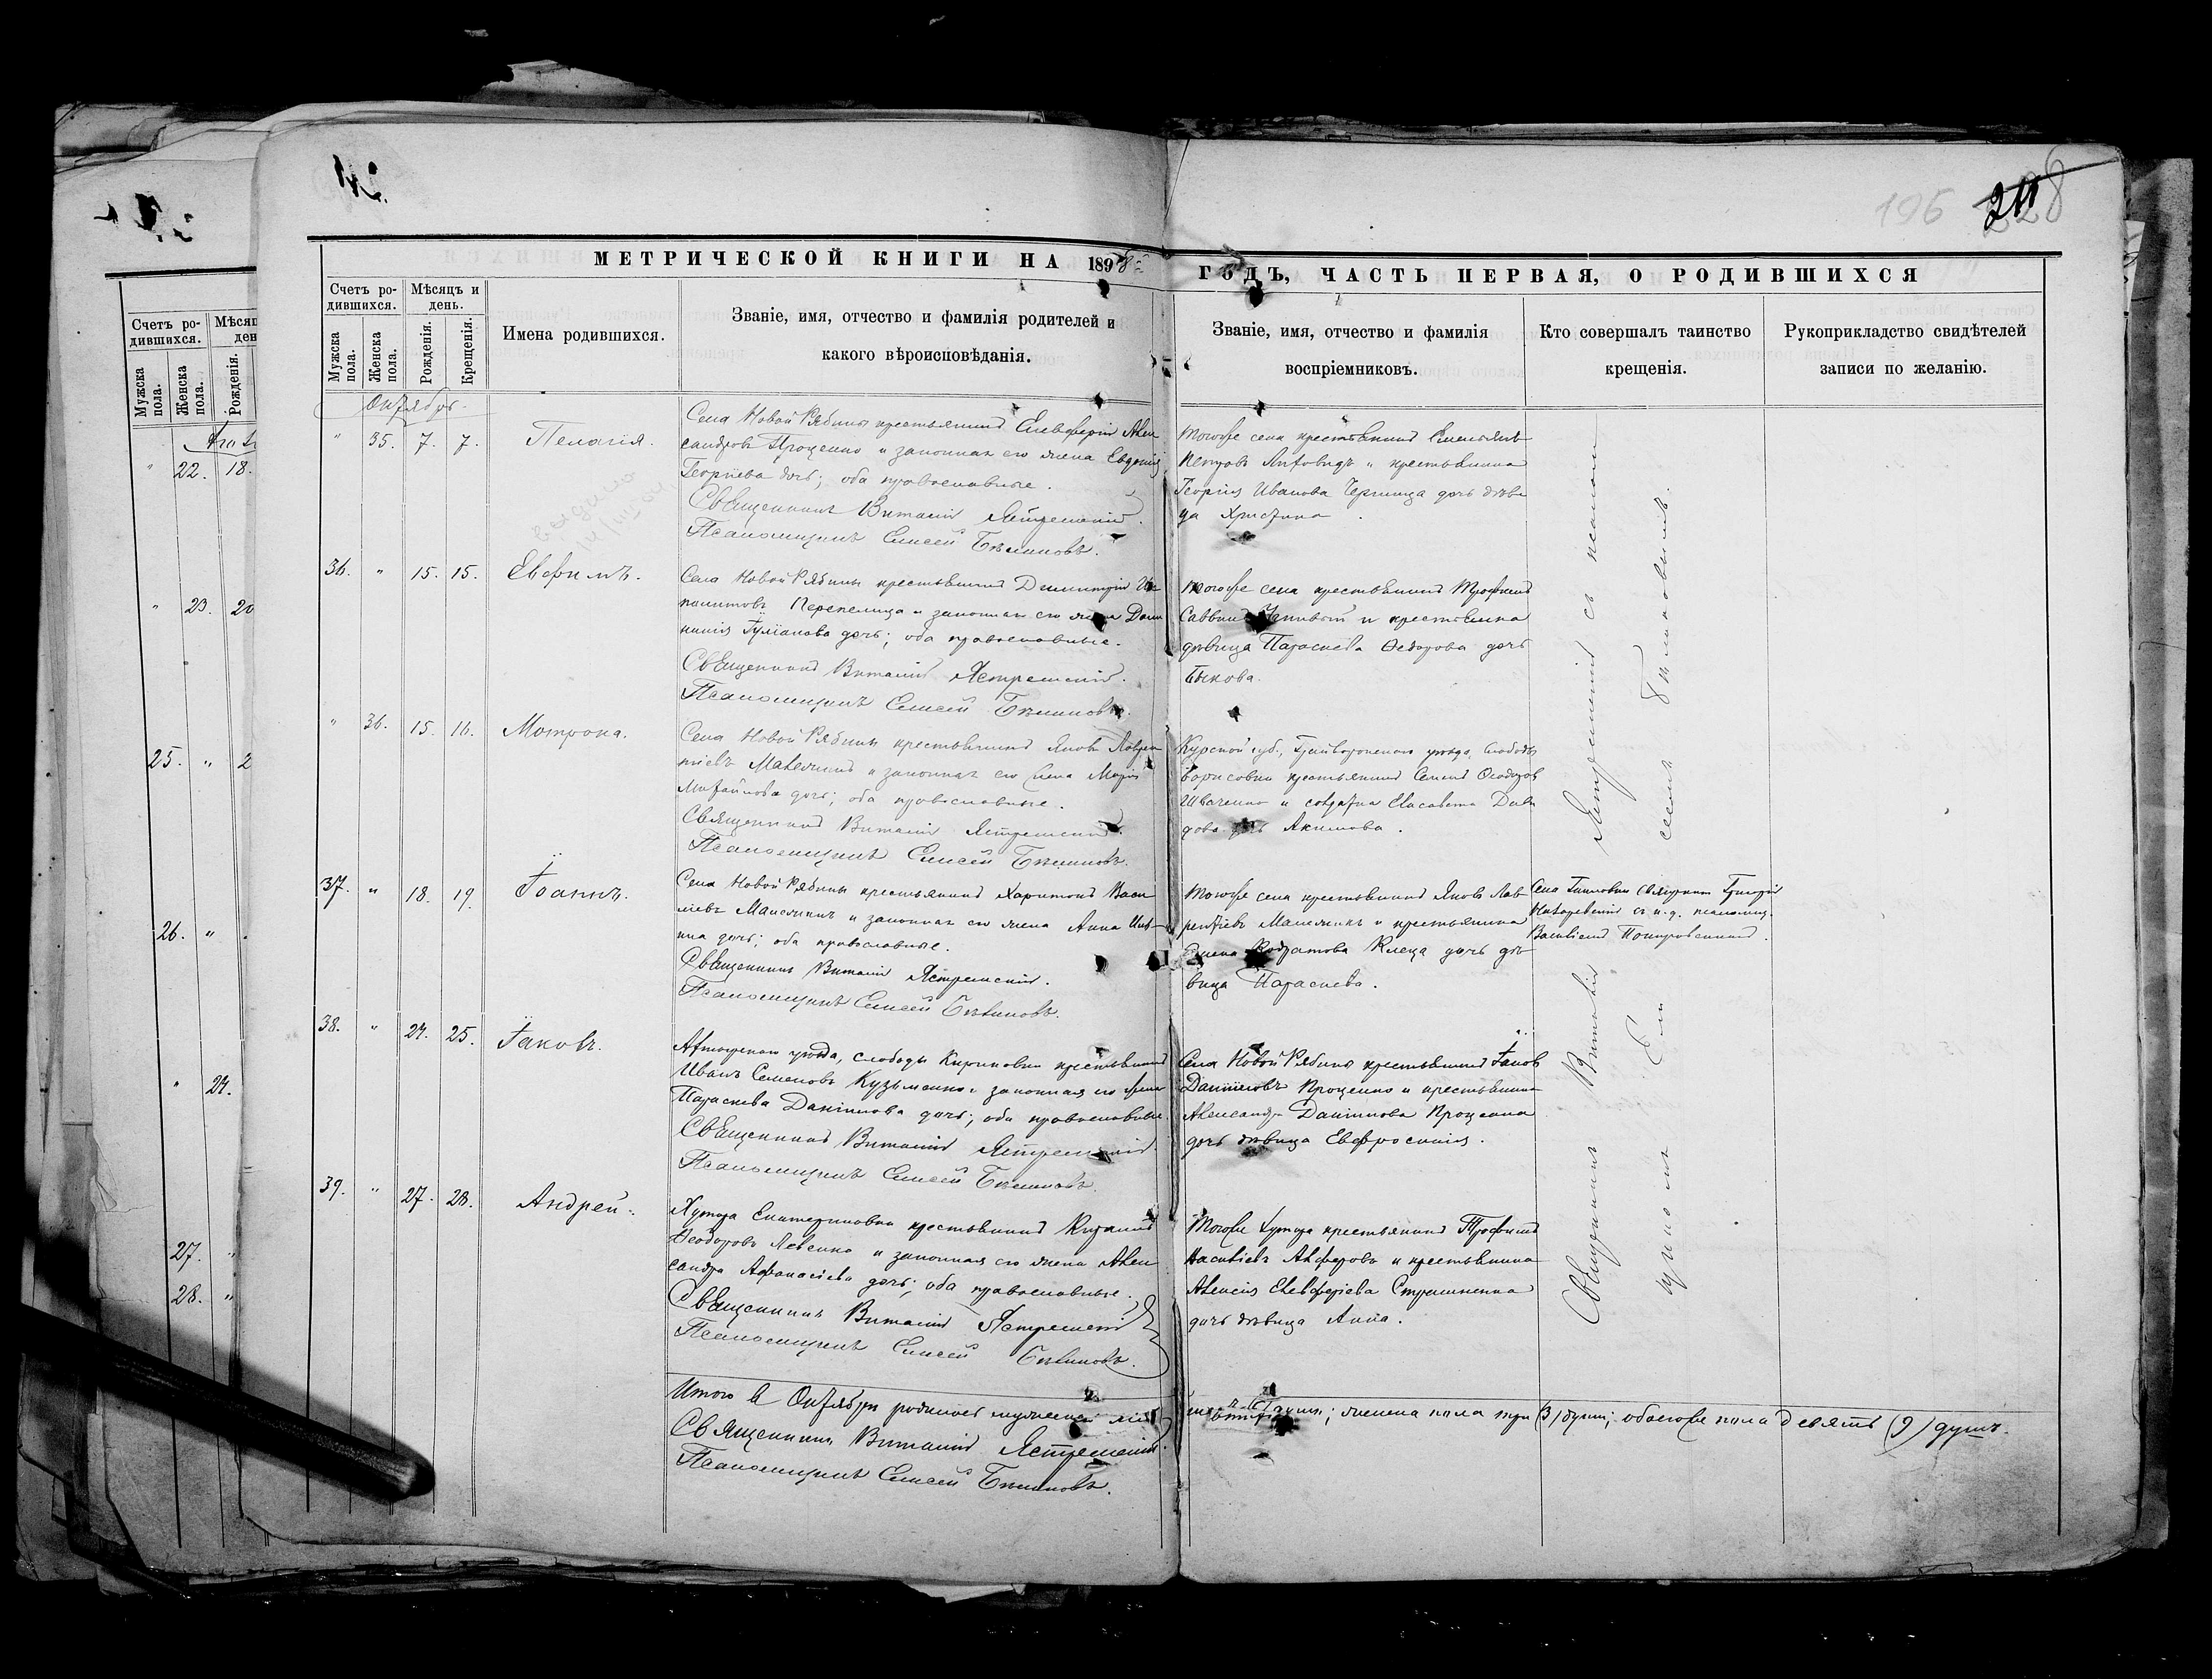 МЕТРИЧЕСКОЙ КНИГИ НА 1898
ГОДЪ, ЧАСТЬ ПЕРВАЯ, О РОДИВШИХСЯ
Счетъ ро-
дившихся.
Мужска пола.
Женска пола.
Мѣсяцъ и
день.
Рожденія.
Крещенія.
Имена родившихся.
Званіе, имя, отчество и фамилія родителей и
какого вѣроисповѣданія.
Званіе, имя, отчество и фамилія
воспріемниковъ.
Кто совершалъ таинство
крещенія.
Рукоприкладство свидѣтелей
записи по желанію.
Октябрь
" 35. 7. 7. Пелагія.
Села Новой Рябины крестьянинъ Елевферій Алек
сандровъ Проценко и законная его жена Евдокія
Георгіева дочь; оба православные.
Священникъ Виталій Ястремскій.
Псаломщикъ Елисей Бѣликовъ.
Тогоже села крестьянинъ Емельянъ
Петровъ и крестьянина
Георгія Иванова дочь дѣви
ца Христина.
36. " 15. 15. Евфимъ.
Села Новой Рябины крестьянинъ Димитрій Ип
политовъ Перепелица и законная его жена Дом
никія Гуліанова дочь; оба православные.
Священникъ Виталій Ястремскій.
Псаломщикъ Елисей Бѣликовъ.
Тогоже села крестьянинъ Трофимъ
Саввинъ и крестьянка
дѣвица Параскева Ѳедорова дочь
Быкова.
" 36. 15. 16. Мотрона.
Села Новой Рябины крестьянинъ Яковъ Лаврен
тіевъ Маслчинъ и законная его жена Марія
Михайлова дочь; оба православные.
Священникъ Виталій Ястремскій.
Псаломщикъ Елисей Бѣликовъ.
Курской губ., Грайворонскаго уѣзда, слободы
Борисовки крестьянинъ Семенъ Ѳеодоров
Ивченко и солдатка Елисавета Дави
дова дочь Акимова.
37. " 18. 19. Іоаннъ.
Села Новой Рябины крестьянинъ Харитонъ Васи
ліевъ и законная его жена Анна
дочь; оба православные.
Священникъ Виталій Ястремскій.
Псаломщикъ Елисей Бѣликовъ.
Тогоже села крестьянинъ Яковъ Лав
рентіевъ и крестьянина
Кодратова Клеца дочь дѣ
вица Параскева.
Села священникъ Григорій
съ и. д. псаломщ.
Василіемъ Покровскимъ.
38. " 24. 25. Іаковъ.
Ахтырскаго уѣзда, слободы Кириковки крестьянинъ
Иванъ Семеновъ Кузьменко и законная его жена
Параскева Даніилова дочь; оба православные.
Священникъ Виталій Ястремскій.
Псаломщикъ Елисей Бѣликовъ.
Села Новой Рябины крестьянинъ Іаков
Данииловъ Проценко и крестьянина
Александра Даниилова Проценка
дочь дѣвица Евфросинія.
39. " 27. 28. Андрей.
Хутора Екатериновки крестьянинъ
Ѳеодоровъ Левенко и законная его жена Алек
сандра Афанасіева дочь; оба православные.
Священникъ Виталій Ястремскій
Псаломщикъ Елисей Бѣликовъ.
Тогоже хутора крестьянинъ Трофимъ
Василіевъ и крестьянина
Алексія Елевферіева
дочь дѣвица Анна.
Священникъ Виталій Ястремскій съ псалом
щикомъ Елисеемъ Бѣликовымъ.
Итого в Октябрѣ родилось мужеска
женска пола три (3) души; обоего же пола девять (9) душъ.
Священникъ Виталій Ястремскій.
Псаломщикъ Елисей Бѣликовъ.
Счетъ ро-
дившихся.
Мужска пола.
Женска пола.
Рожденія.
" 22. 18.
" 23. 20
25. " 2
26. "
" 24.
27. "
28. "